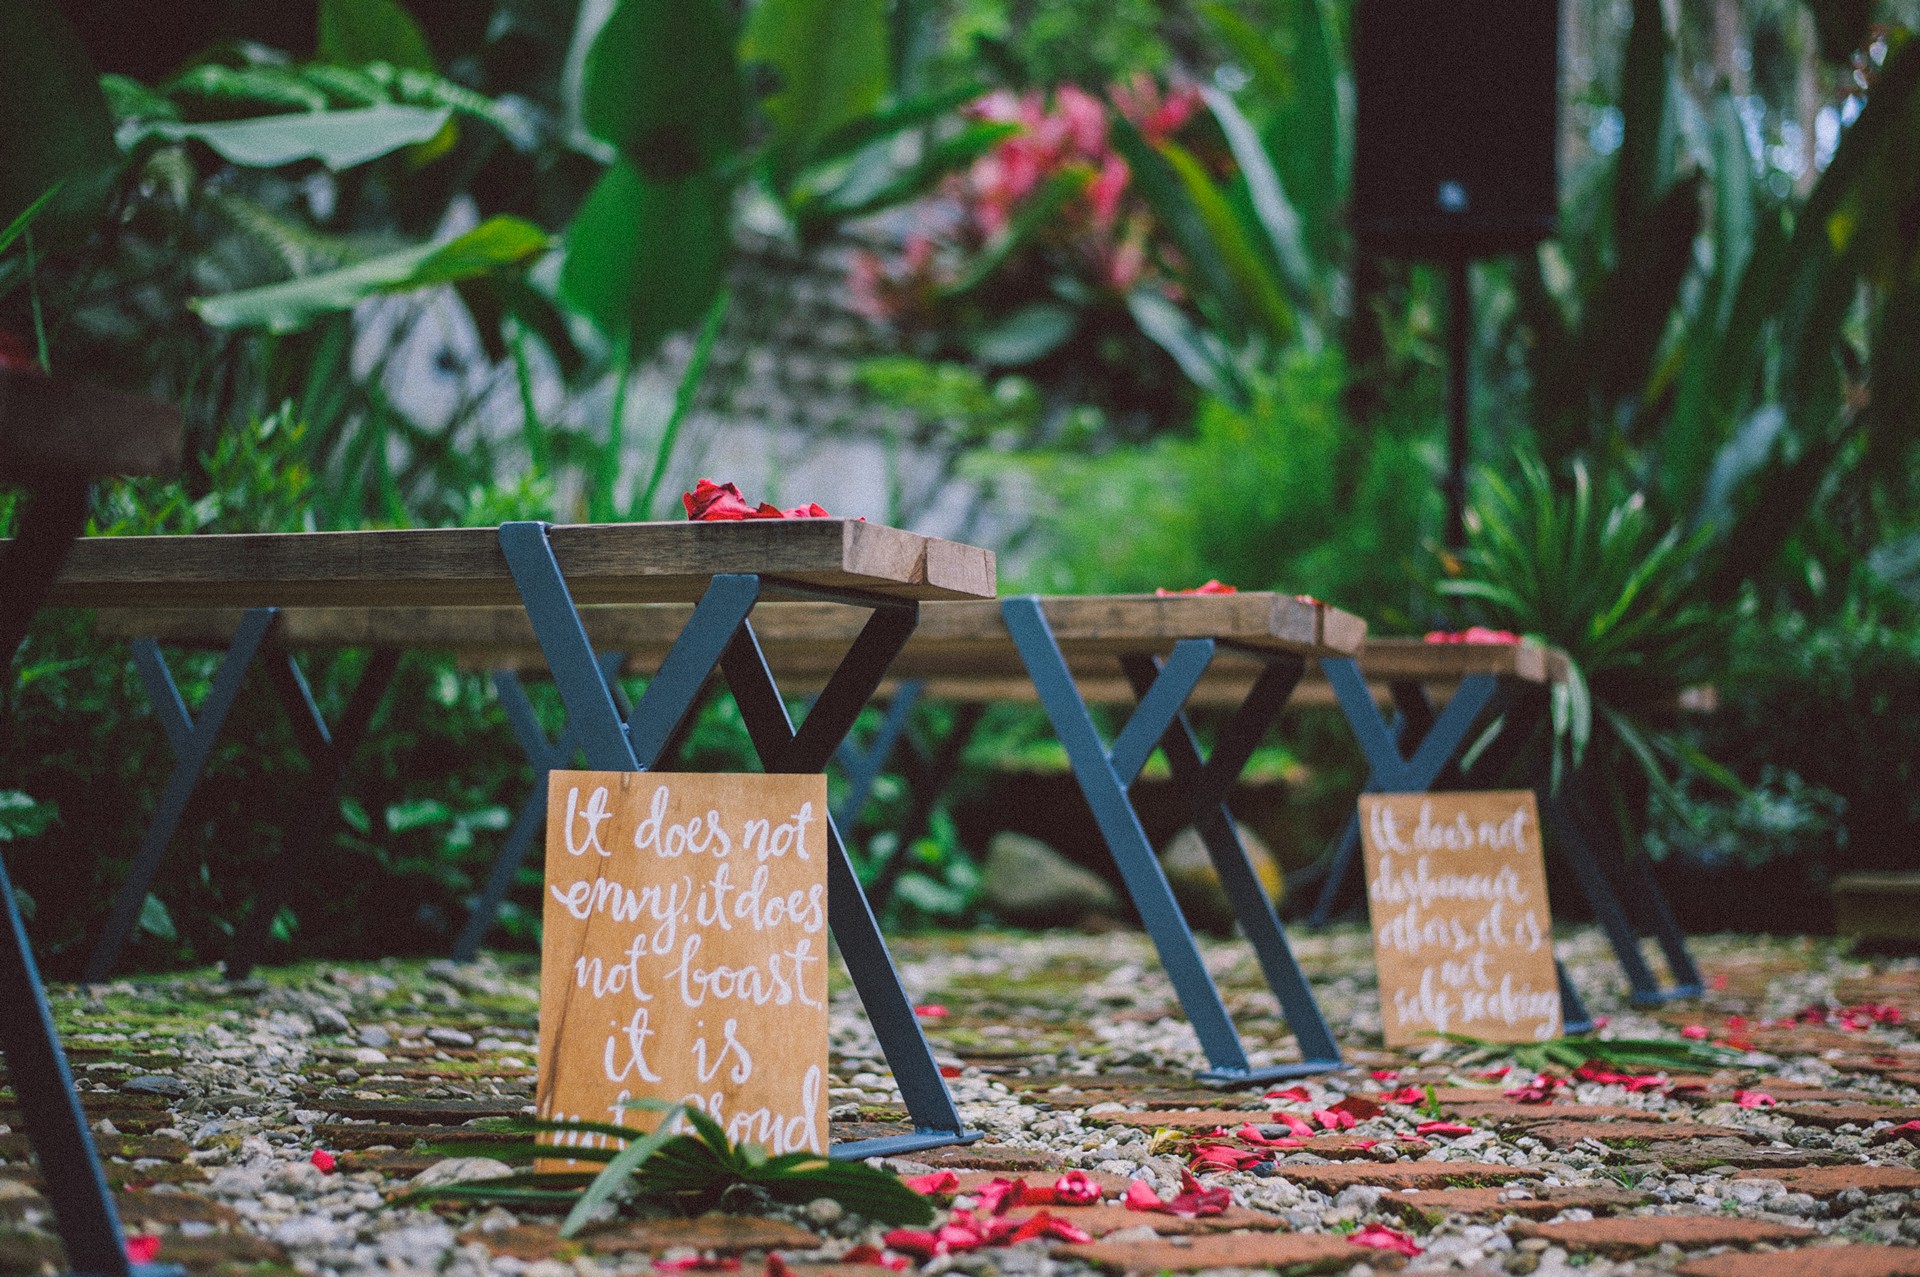 It does not
envy, it does
not boast,
it is
not proud
It does not
dishonour
others, it is
not
self-seeking